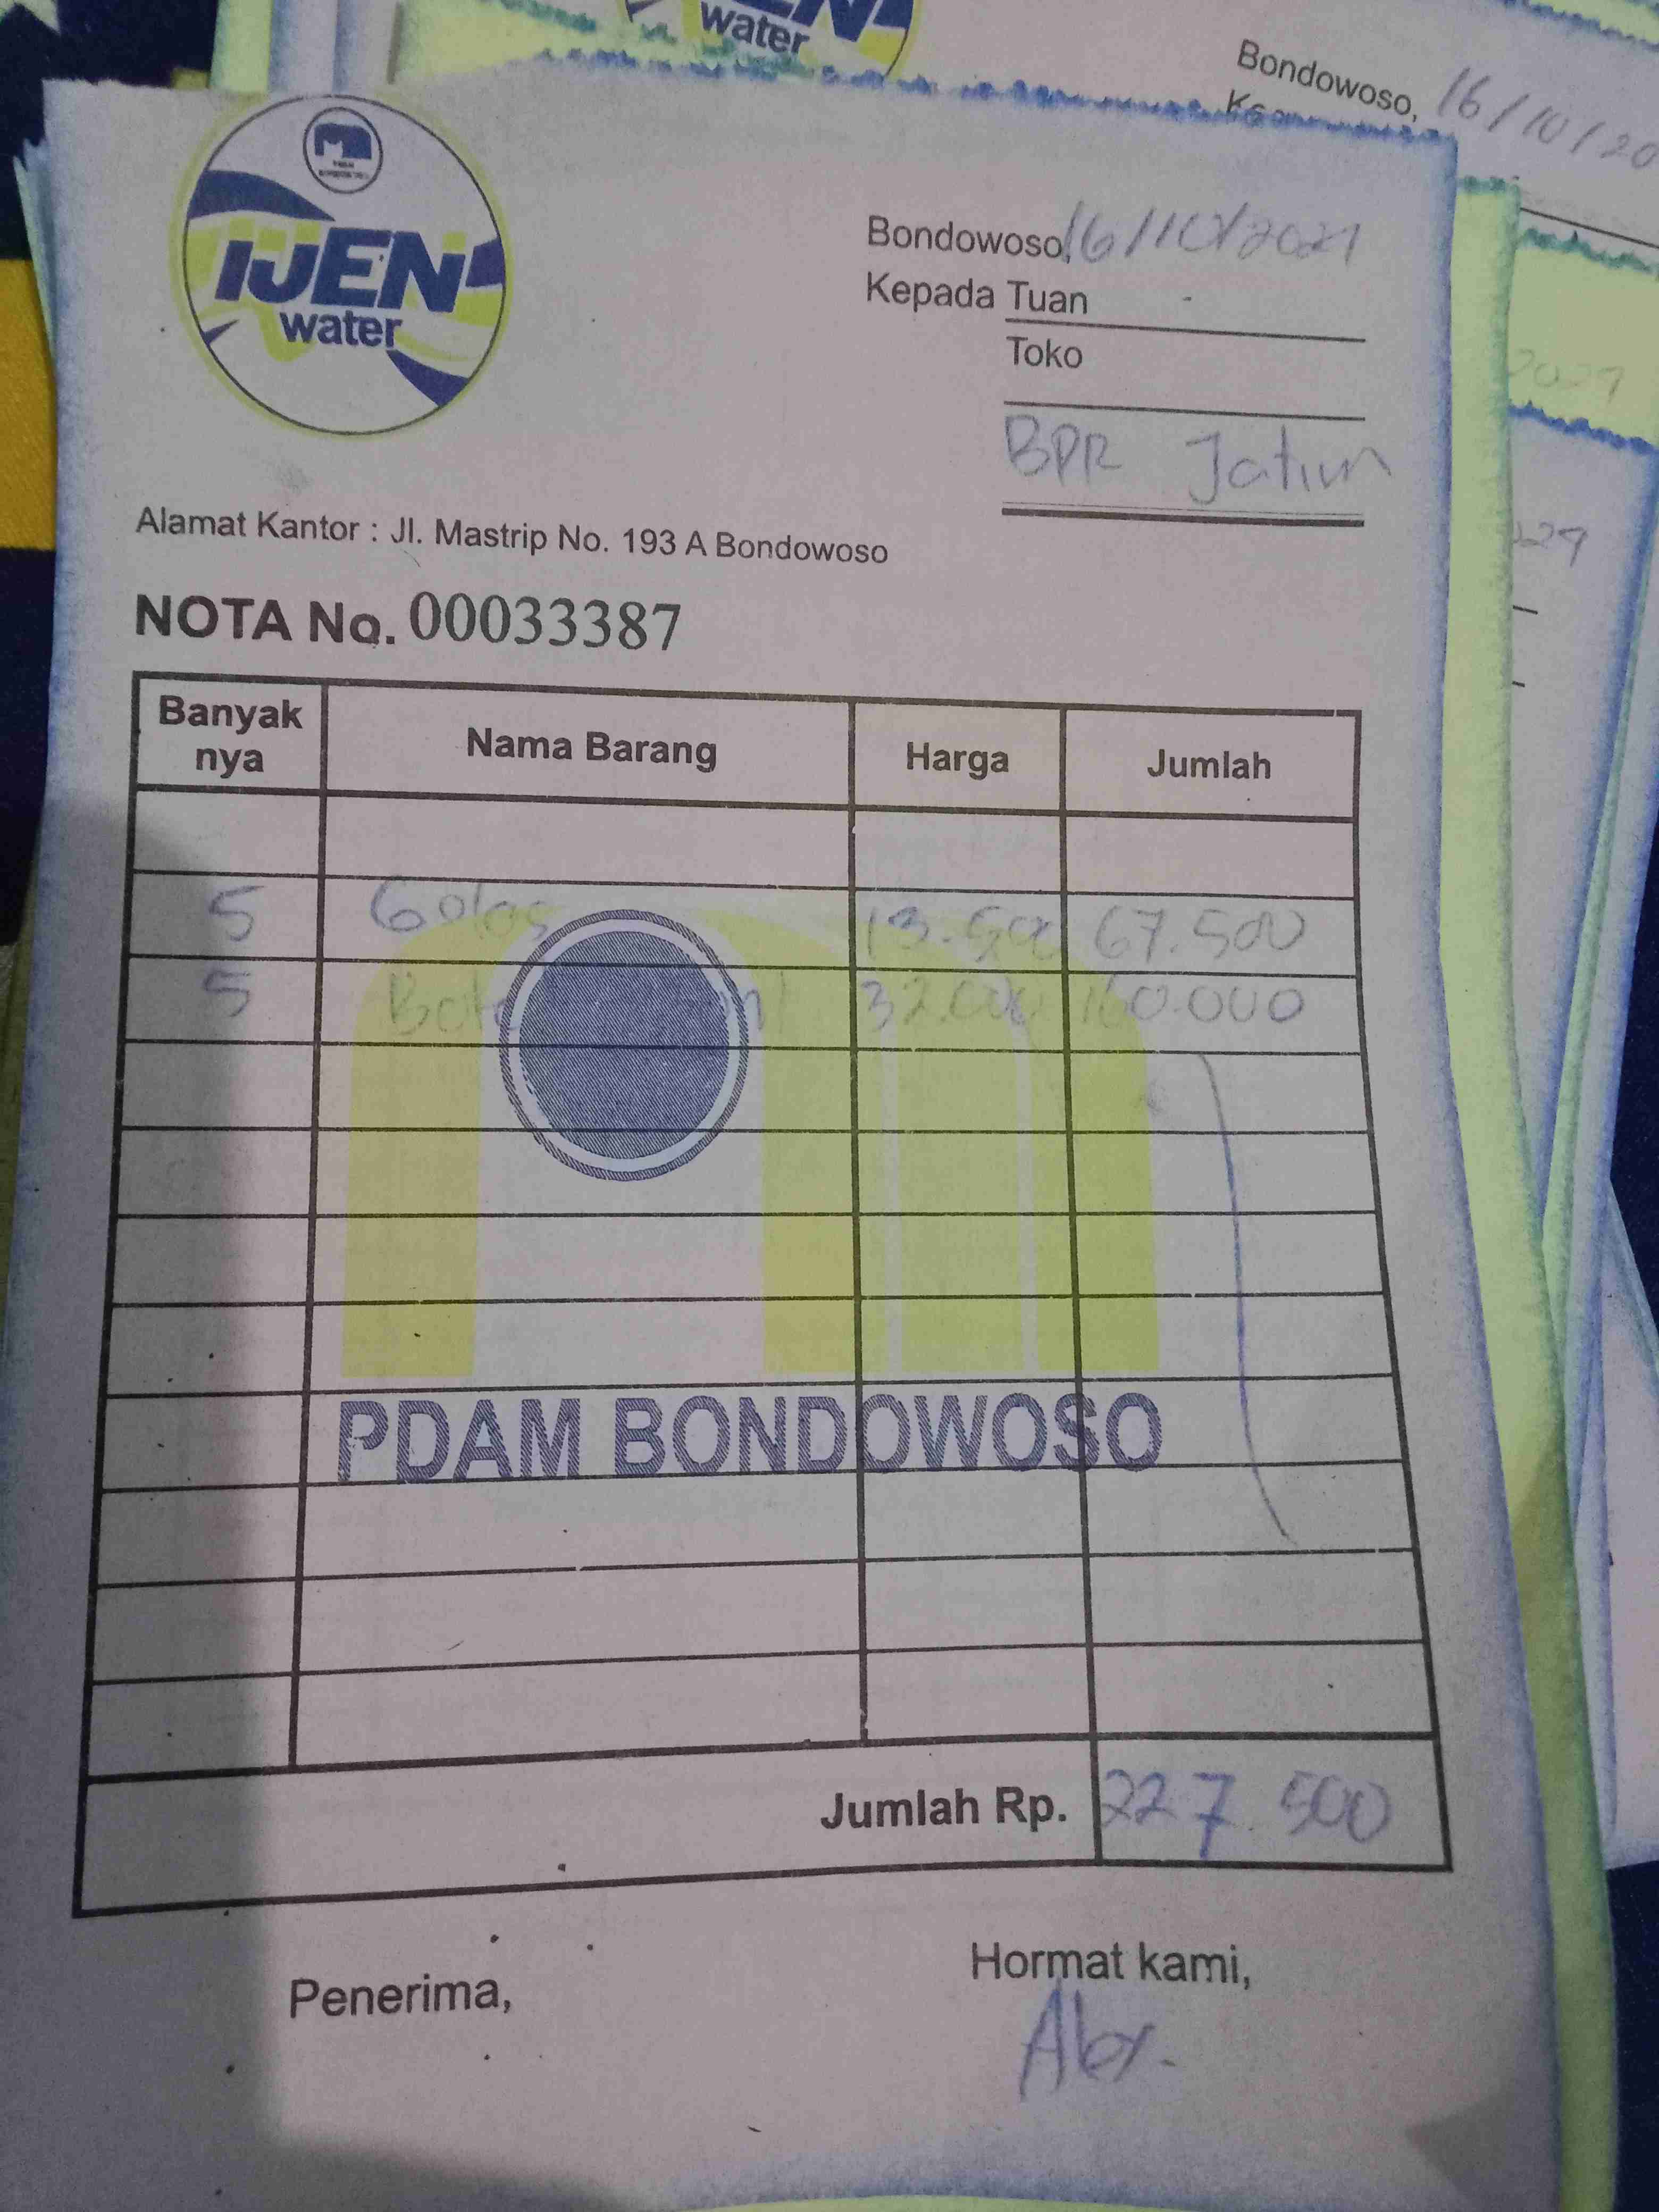 water
Bondowoso, 16/10/20
IJEN
water
Bondowoso, 16/10/2021
Kepada Tuan
Toko
BPR Jatim
Alamat Kantor : Jl. Mastrip No. 193 A Bondowoso
NOTA No. 00033387
Banyak nya Nama Barang Harga Jumlah
5 Gelas 13.500 67.500
5 32.000 160.000
PDAM BONDOWOSO
Jumlah Rp. 227.500
Penerima, Hormat kami,